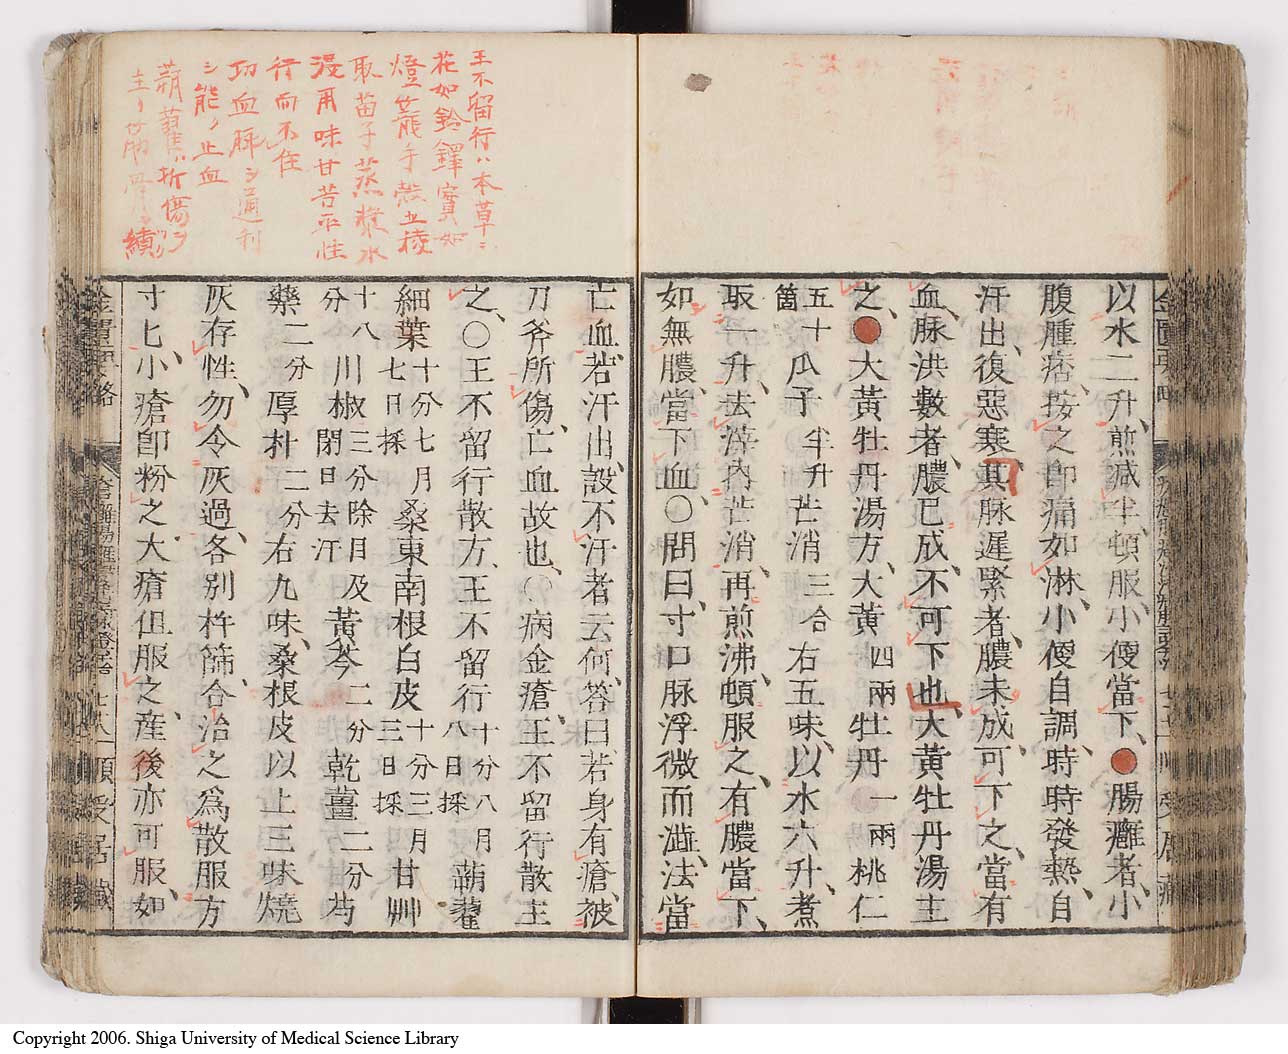 以水二升、煎減半、頓服、小便當下、●腸癰者、小
腹腫痞、按之即痛如淋、小便自調、時時發熱、自
汗出、復惡寒、其脉遲緊者、膿未成、可下之、當有
血、脉洪數者、膿已成、不可下也、大黃牡丹湯主
之、●大黃牡丹湯方、大黃四兩牡丹一兩桃仁
五十箇瓜子半升芒消三合右五味、以水六升、煮
取一升、去滓、內芒消、再煎沸、頓服之、有膿當下、
如無膿、當下血、○問曰、寸口脉浮微而濇、法當
亡血、若汗出、設不汗者云何、答曰、若身有瘡、被
刀斧所傷、亡血故也、○病金瘡、王不留行散主
之、○王不留行散方、王不留行十分八月八日採蒴藋
細葉十分七月七日採桑東南根白皮十分三月三日採甘艸
十八分川椒三分除目及閉口去汗黃芩二分乾薑二分芍
藥二分厚朴二分右九味、桑根皮以上三味燒
灰存性、勿令灰過、各別杵篩、合治之爲散、服方
寸匕、小瘡卽粉之、大瘡但服之、産後亦可服、如
王不留行ハ本草ニ
花如鈴鐸實如
燈籠子殻五稜
取苗子蒸漿水
浸用味甘苦平性
行而不住
功血脉ヲ通利
シ能ク止血
蒴藋ハ折傷ヲ
主リ筋骨ヲ續
Copyright 2006. Shiga University of Medical Science Library